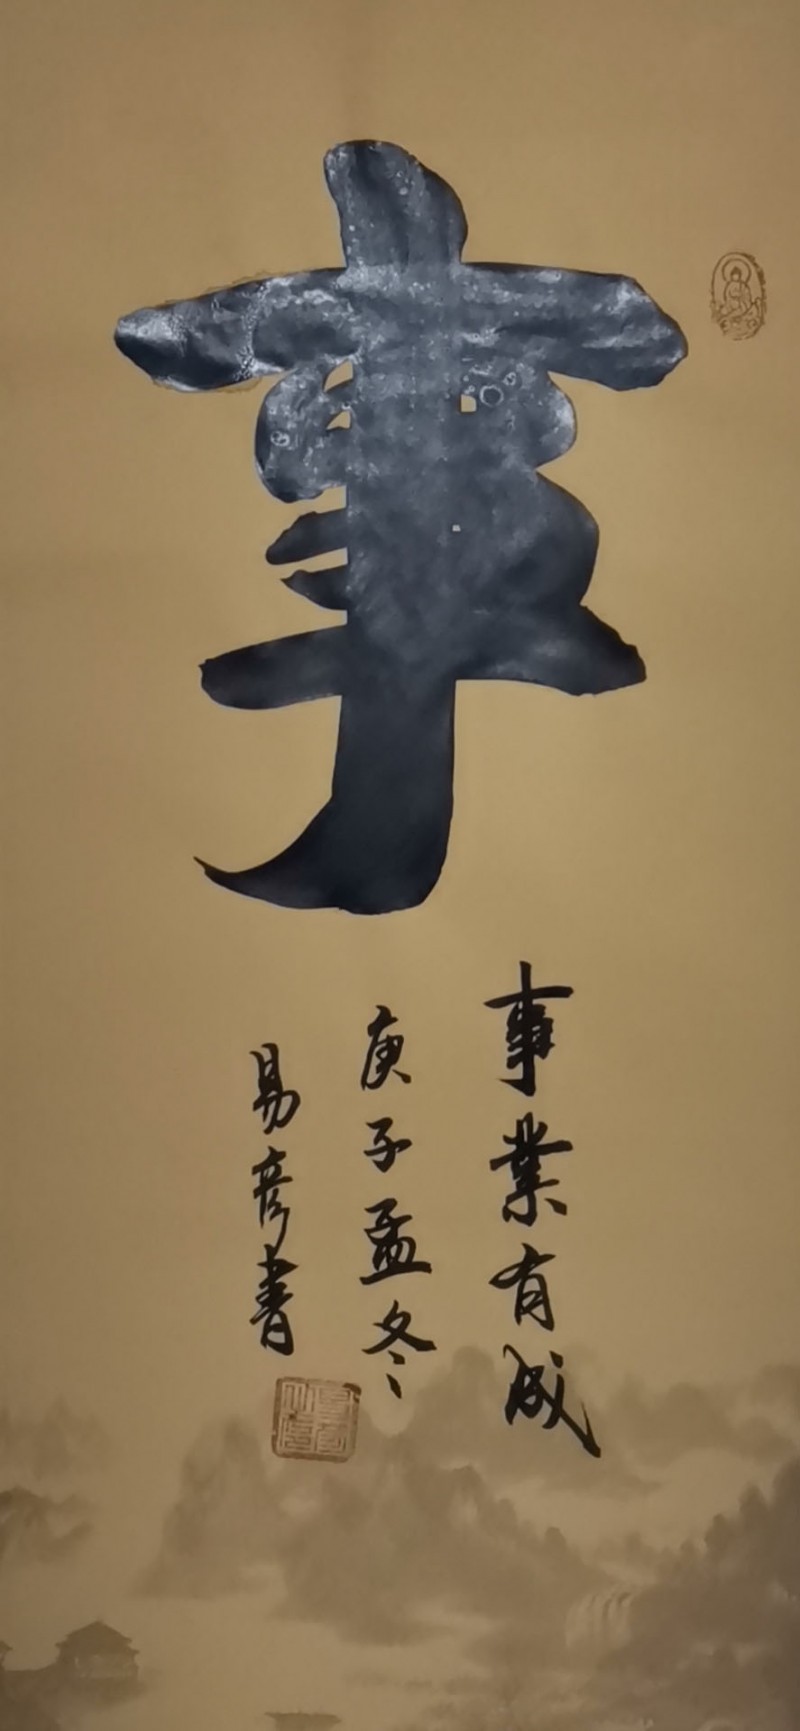 事
事業有成
庚子孟冬
易彦書